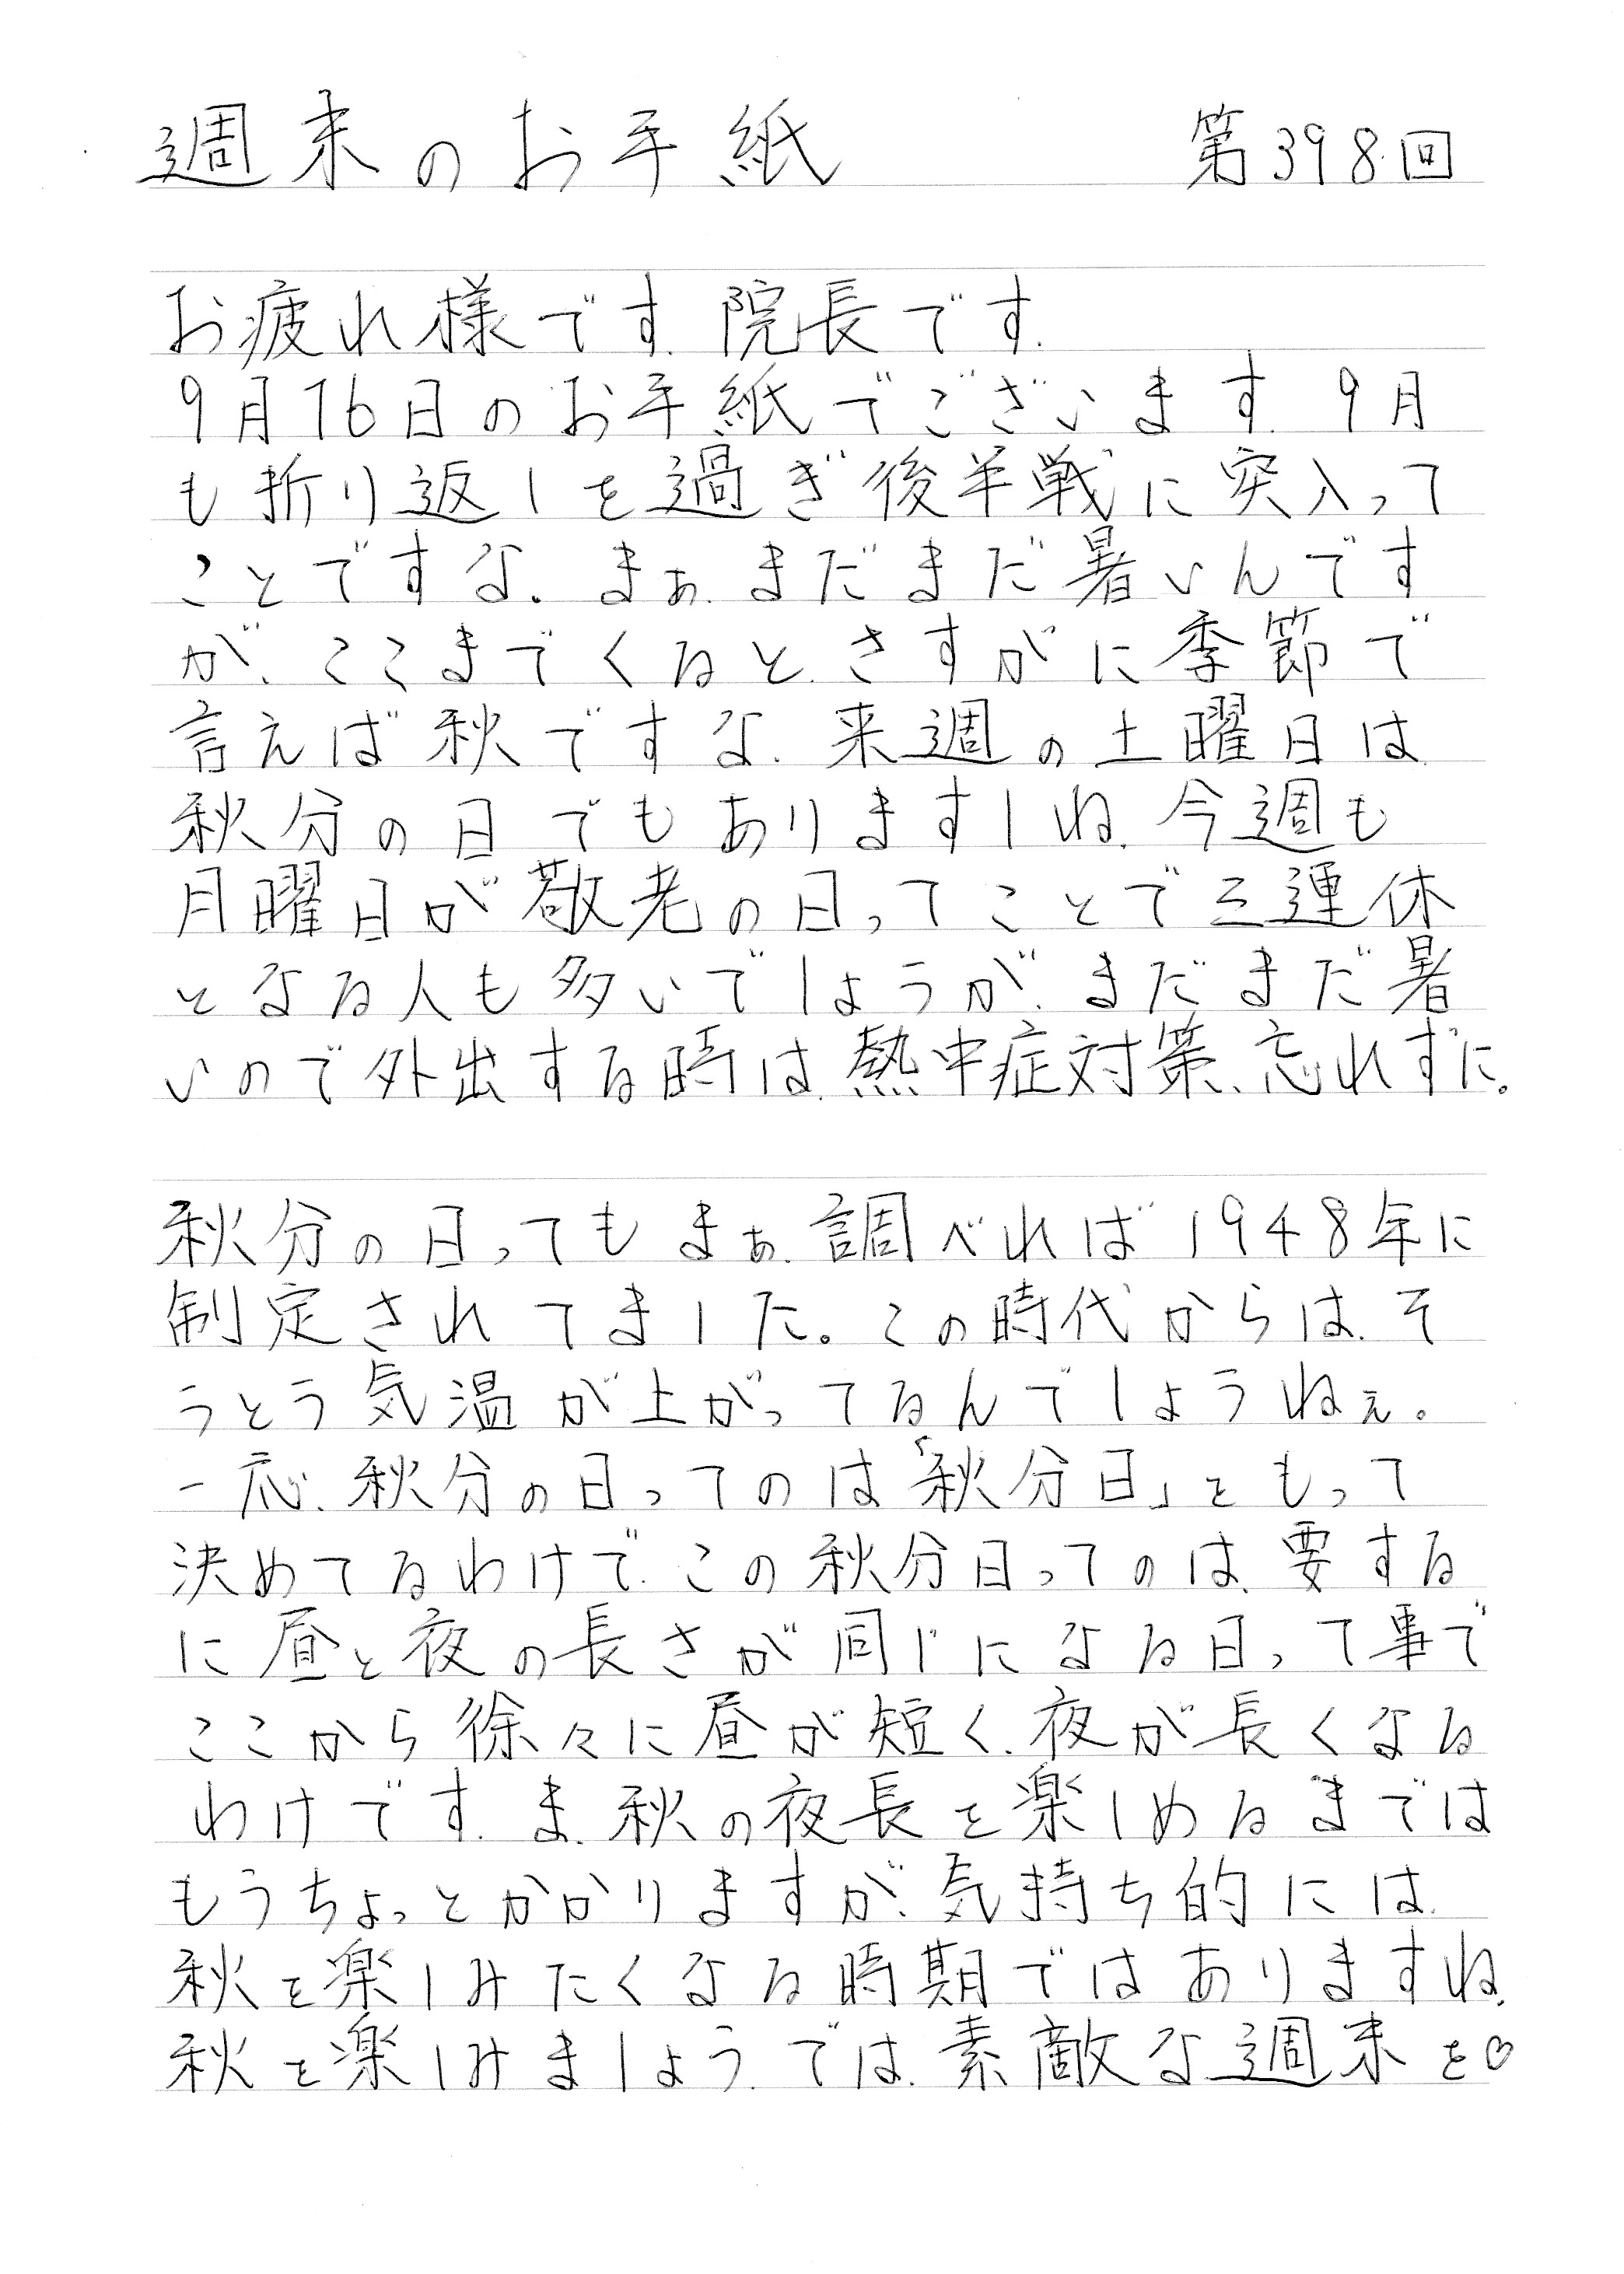 週末のお手紙 第398回
お疲れ様です.院長です.
9月16日のお手紙でございます.9月
も折り返しを過ぎ後半戦に突入って
ことですな。まぁ.まだまだ暑いんです
が、ここまでくると.さすがに季節で
言えば秋ですな.来週の土曜日は
秋分の日でもありますしね.今週も
月曜日が敬老の日ってことで三連休
となる人も多いでしょうが、まだまだ暑
いので外出する時は.熱中症対策、忘れずに。
秋分の日ってもまぁ.調べれば1948年に
制定されてました。この時代からは.そ
うとう気温が上がってるんでしょうねぇ。
一応.秋分の日ってのは「秋分日」をもって
決めてるわけで.この秋分日ってのは、要する
に昼と夜の長さが同じになる日って事で
ここから徐々に昼が短く.夜が長くなる
わけです.ま.秋の夜長を楽しめるまでは
もうちょっとかかりますが、気持ち的には.
秋を楽しみたくなる時期ではありますね.
秋を楽しみましょう.では.素敵な週末を♡